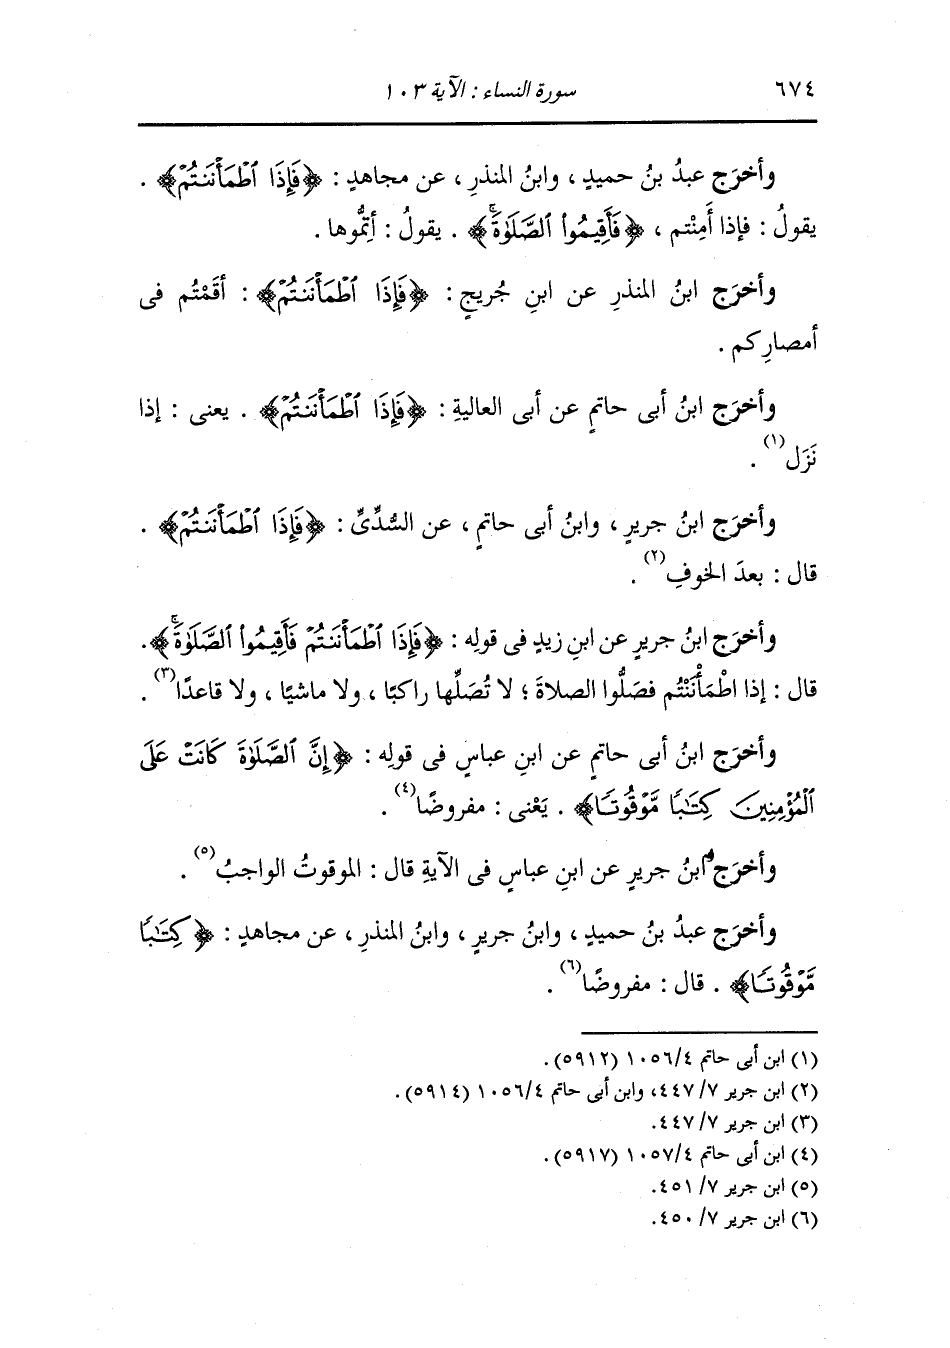 ٦٧٤
سورة النساء : الآية ١٠٣
وأخرَج عبدُ بنُ حميدٍ ، وابنُ المنذرِ ، عن مجاهدٍ : ﴿فَإِذَا ٱطْمَأْنَنتُمْ﴾ .
يقولُ : فإذا أَمِنْتم ، ﴿فَأَقِيمُوا۟ ٱلصَّلَوٰةَۚ﴾ . يقولُ : أتِمُّوها .
وأخرَج ابنُ المنذرِ عن ابنِ جُريجٍ : ﴿فَإِذَا ٱطْمَأْنَنتُمْ﴾ : أقَمْتُم فى
أمصارِكم .
وأخرَج ابنُ أبى حاتمٍ عن أبى العاليةِ : ﴿فَإِذَا ٱطْمَأْنَنتُمْ﴾ . يعنى : إذا
نَزَل(١) .
وأخرَج ابنُ جريرٍ ، وابنُ أبى حاتمٍ ، عن السُّدِّىِّ : ﴿فَإِذَا ٱطْمَأْنَنتُمْ﴾ .
قال : بعدَ الخوفِ(٢) .
وأخرَج ابنُ جريرٍ عن ابنِ زيدٍ فى قولِه : ﴿فَإِذَا ٱطْمَأْنَنتُمْ فَأَقِيمُوا۟ ٱلصَّلَوٰةَۚ﴾.
قال : إذا اطْمَأْنَنْتُم فصَلُّوا الصلاةَ ؛ لا تُصَلِّها راكبًا ، ولا ماشيًا ، ولا قاعدًا(٣) .
وأخرَج ابنُ أبى حاتمٍ عن ابنِ عباسٍ فى قولِه : ﴿إِنَّ ٱلصَّلَوٰةَ كَانَتْ عَلَى
ٱلْمُؤْمِنِينَ كِتَٰبًا مَّوْقُوتًا﴾ . يَعْنى : مفروضًا(٤) .
وأخرَج ابنُ جريرٍ عن ابنِ عباسٍ فى الآيةِ قال : الموقوتُ الواجبُ(٥) .
وأخرَج عبدُ بنُ حميدٍ ، وابنُ جريرٍ ، وابنُ المنذرِ ، عن مجاهدٍ : ﴿كِتَٰبًا
مَّوْقُوتًا﴾ . قال : مفروضًا(٦) .
(١) ابن أبى حاتم ١٠٥٦/٤ (٥٩١٢).
(٢) ابن جرير ٧/ ٤٤٧، وابن أبى حاتم ١٠٥٦/٤ (٥٩١٤).
(٣) ابن جرير ٧/ ٤٤٧.
(٤) ابن أبى حاتم ١٠٥٧/٤ (٥٩١٧).
(٥) ابن جرير ٧/ ٤٥١.
(٦) ابن جرير ٧/ ٤٥٠.